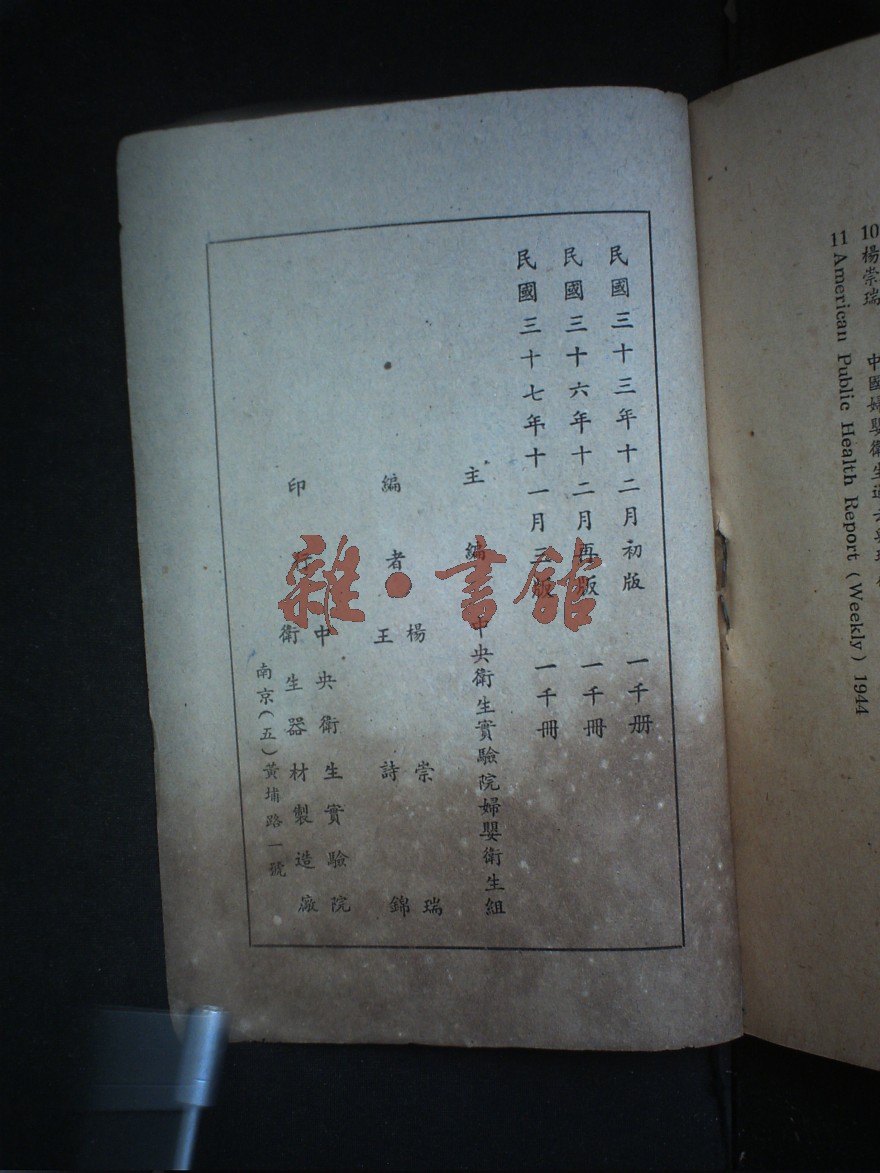 民國三十三年十二月初版　一千册
民國三十六年十二月再版　一千冊
民國三十七年十一月三版　一千冊
主編　中央衛生實驗院婦嬰衛生組
編者　楊崇瑞
王詩錦
印行　中央衛生實驗院
衛生器材製造廠
南京(五)黃埔路一號
雜·書館
10 楊崇瑞　中國婦嬰衛生
11 American Public Health Report (Weekly) 1944